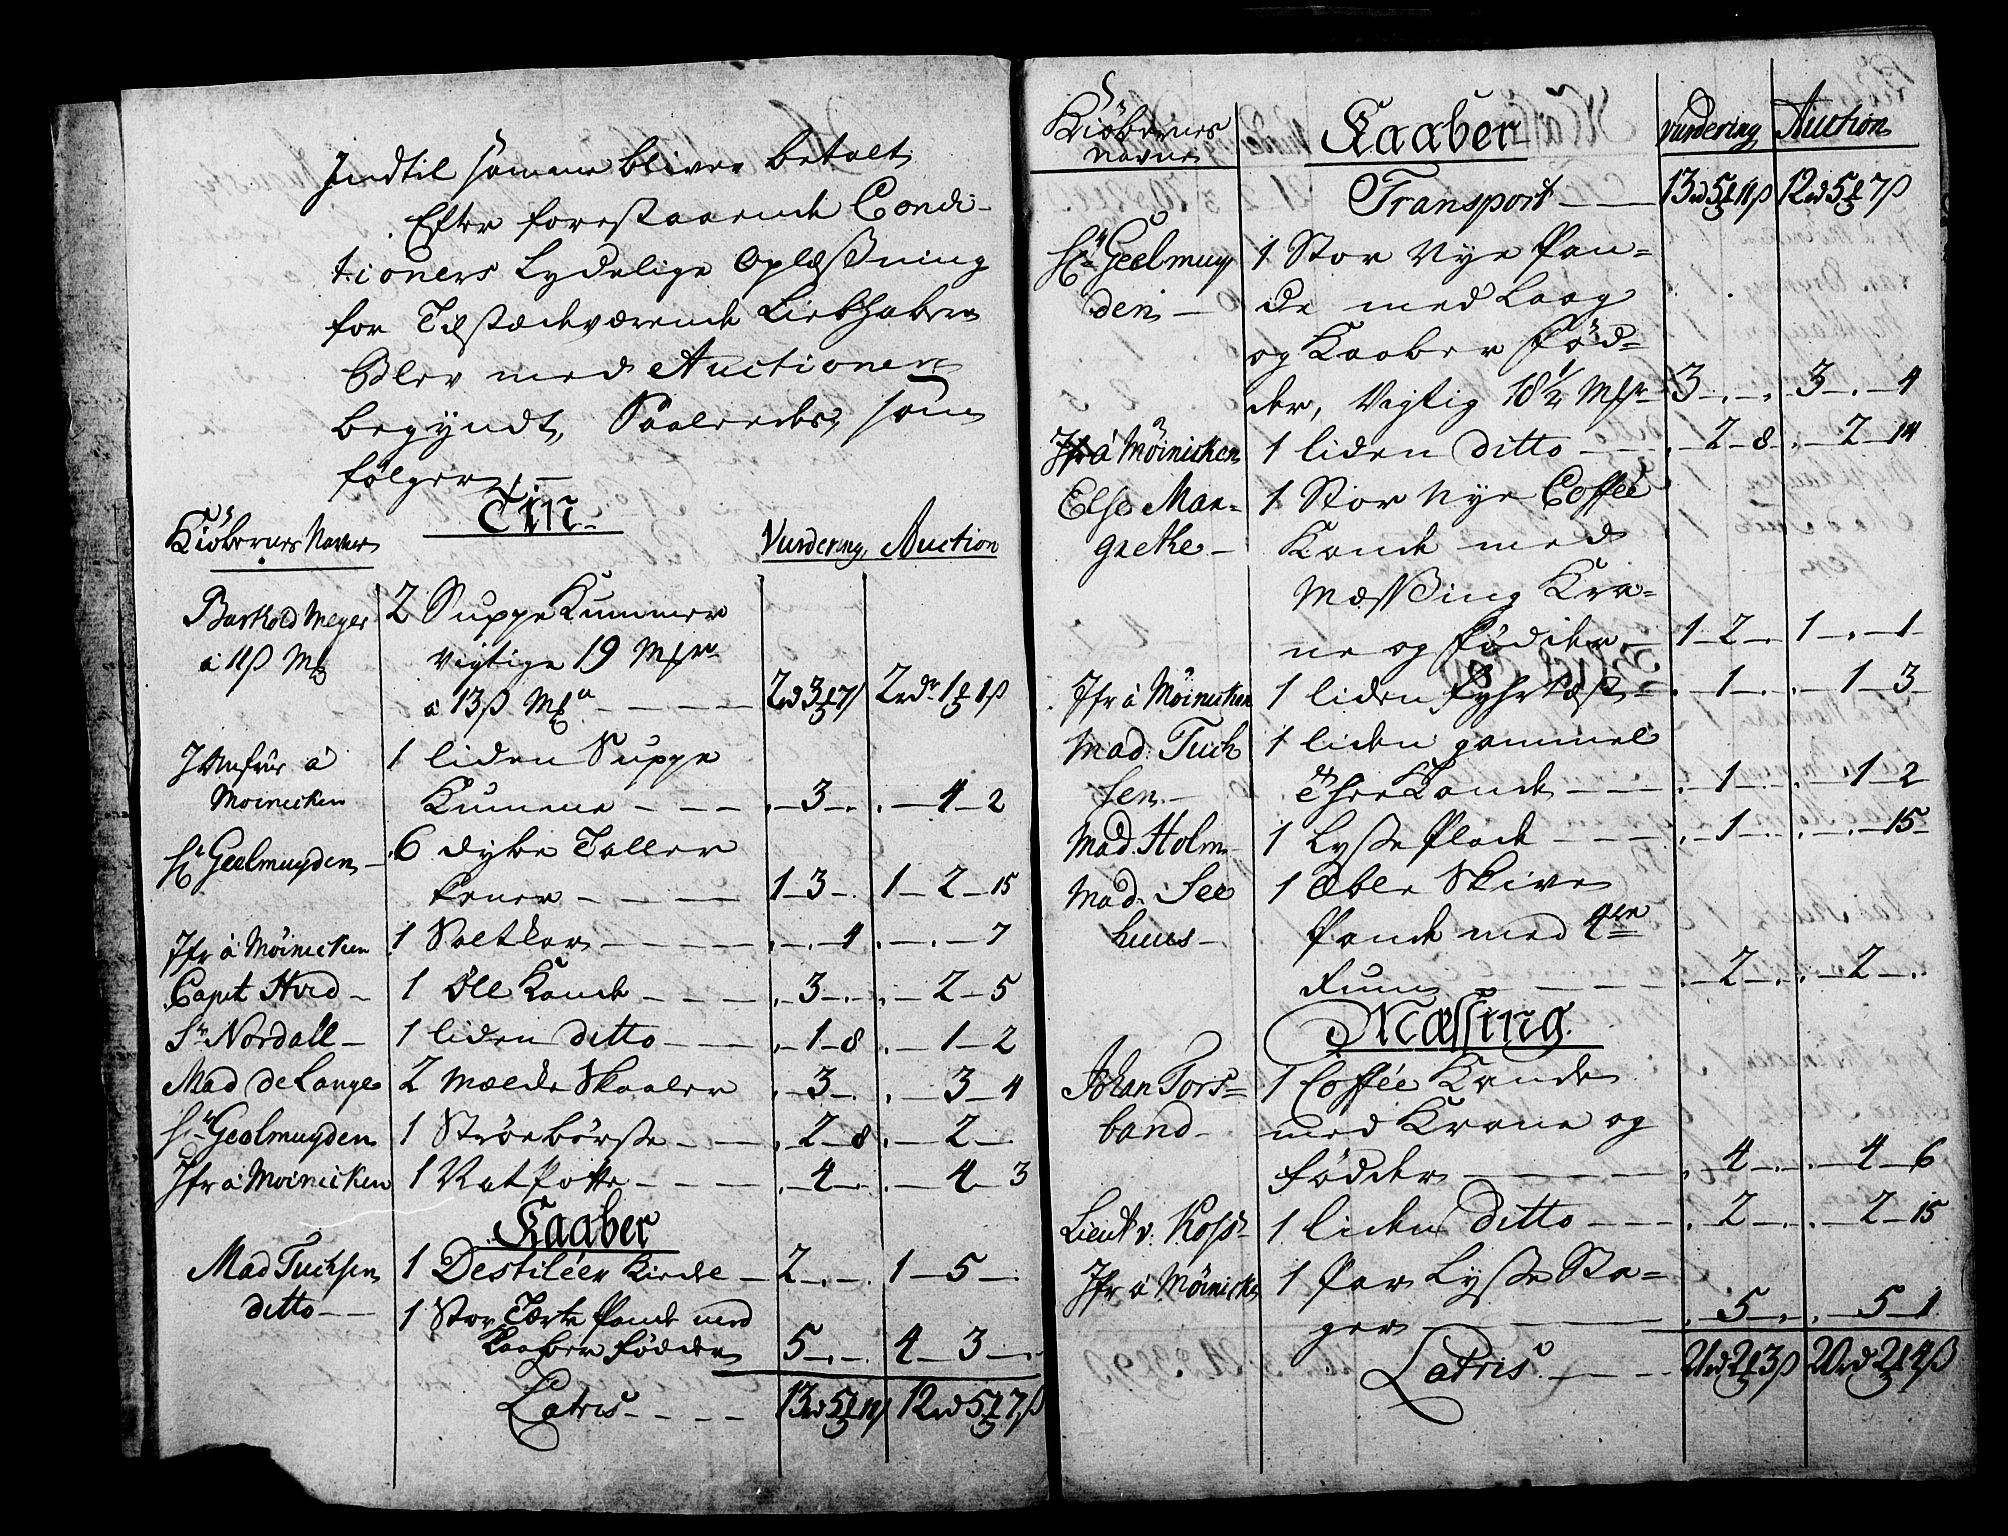 Indtil samme bliver betalt.
Efter forestaaende Condi-
tioners Lydelige Oplæsning
for Tilstædeværende Liebhabere
Blev med Auctionen
begyndt, Saaledes, som
følger,
Tin
Kiøbernes Navne Vurdering Auction
Barthold Meyer 2 Suppe Kummer
a 11ß Mk vigtige 19 Mkr
a 13ß Mk 2rd 3 7ß 2rdr 1 1ß
Jomfrue á 1 liden Suppe
Moinicken Kumme . 3 . . 4 2
Hr Geelmuyden 6 dybe Taller
kener 1 3 . 1 2 15
Jfr á Möinicken 1 Saltkar . . 4 . . 7
Capit Hvid 1 Øll Kande . 3 . . 2 5
Sr Nordall 1 liden ditto . 1 8 . 1 2
Mad de Lange 2 Mælde Skaaler . 3 . . 3 4
Hr Geelmuyden 1 Strøebörste . 2 8 . 2
Jfr á Moinicken 1 Nat Potte . 4 . . 4 3
Kaaber
Mad Tuchsen 1 Destiléer Kiedel 2 . . 1 5 .
ditto 1 Stor Tærte Pande med
Kaaber Födder 5 . . 4 3 .
Latris 13rd 5 11ß 12rd 5 7ß
Kiöbernes
Navne Kaaber Vurdering Auction
Transport 13rd 5 11ß 12rd 5 7ß
Hr Geelmuy 1 Stor Nye Pan-
den de med Laag
og Kaaber Fød-
der, Vigtig 18 1/2 Mkr 3 . . 3 . 4
Jfr á Möinicken 1 liden ditto . 2 8 . 2 14
Else Mar- 1 Stor Nye Coffée
grethe Kande med
Mæssing Kra-
ne og Födder 1 2 . 1 . 1
Jfr á Möinicken 1 liden Fyhrfæst . 1 . . 1 3
Mad. Tuch 1 liden gammel
sen Thee Kande . 1 . . 1 2
Mad. Holm 1 Lysse Plade . 1 . . . 15
Mad. See 1 Æble Skive
huus Pande med 4re
Rum . 2 . . 2 .
Mæssing
Johan Fors- 1 Coffée Kande
band med Krane og
Födder . 4 . . 4 6
Lieut v. Koss 1 liden ditto . 2 . . 2 15
Jfr á Möinicke 1 Par Lysse Sta-
ger . 5 . . 5 1
Latris 21rd 2 3ß 20rd 2 4ß